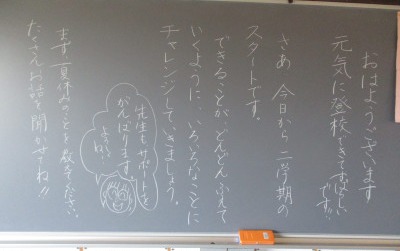 おはようございます
元気に登校できてすばらしい
です!!
さあ 今日から 二学期の
スタートです。
できることが、どんどんふえて
いくように、いろいろなことに
チャレンジしていきましょう。
先生もサポートを
がんばります。
よろしくね!
まず、夏休みのことを教えてください。
たくさんお話を聞かせてね!!